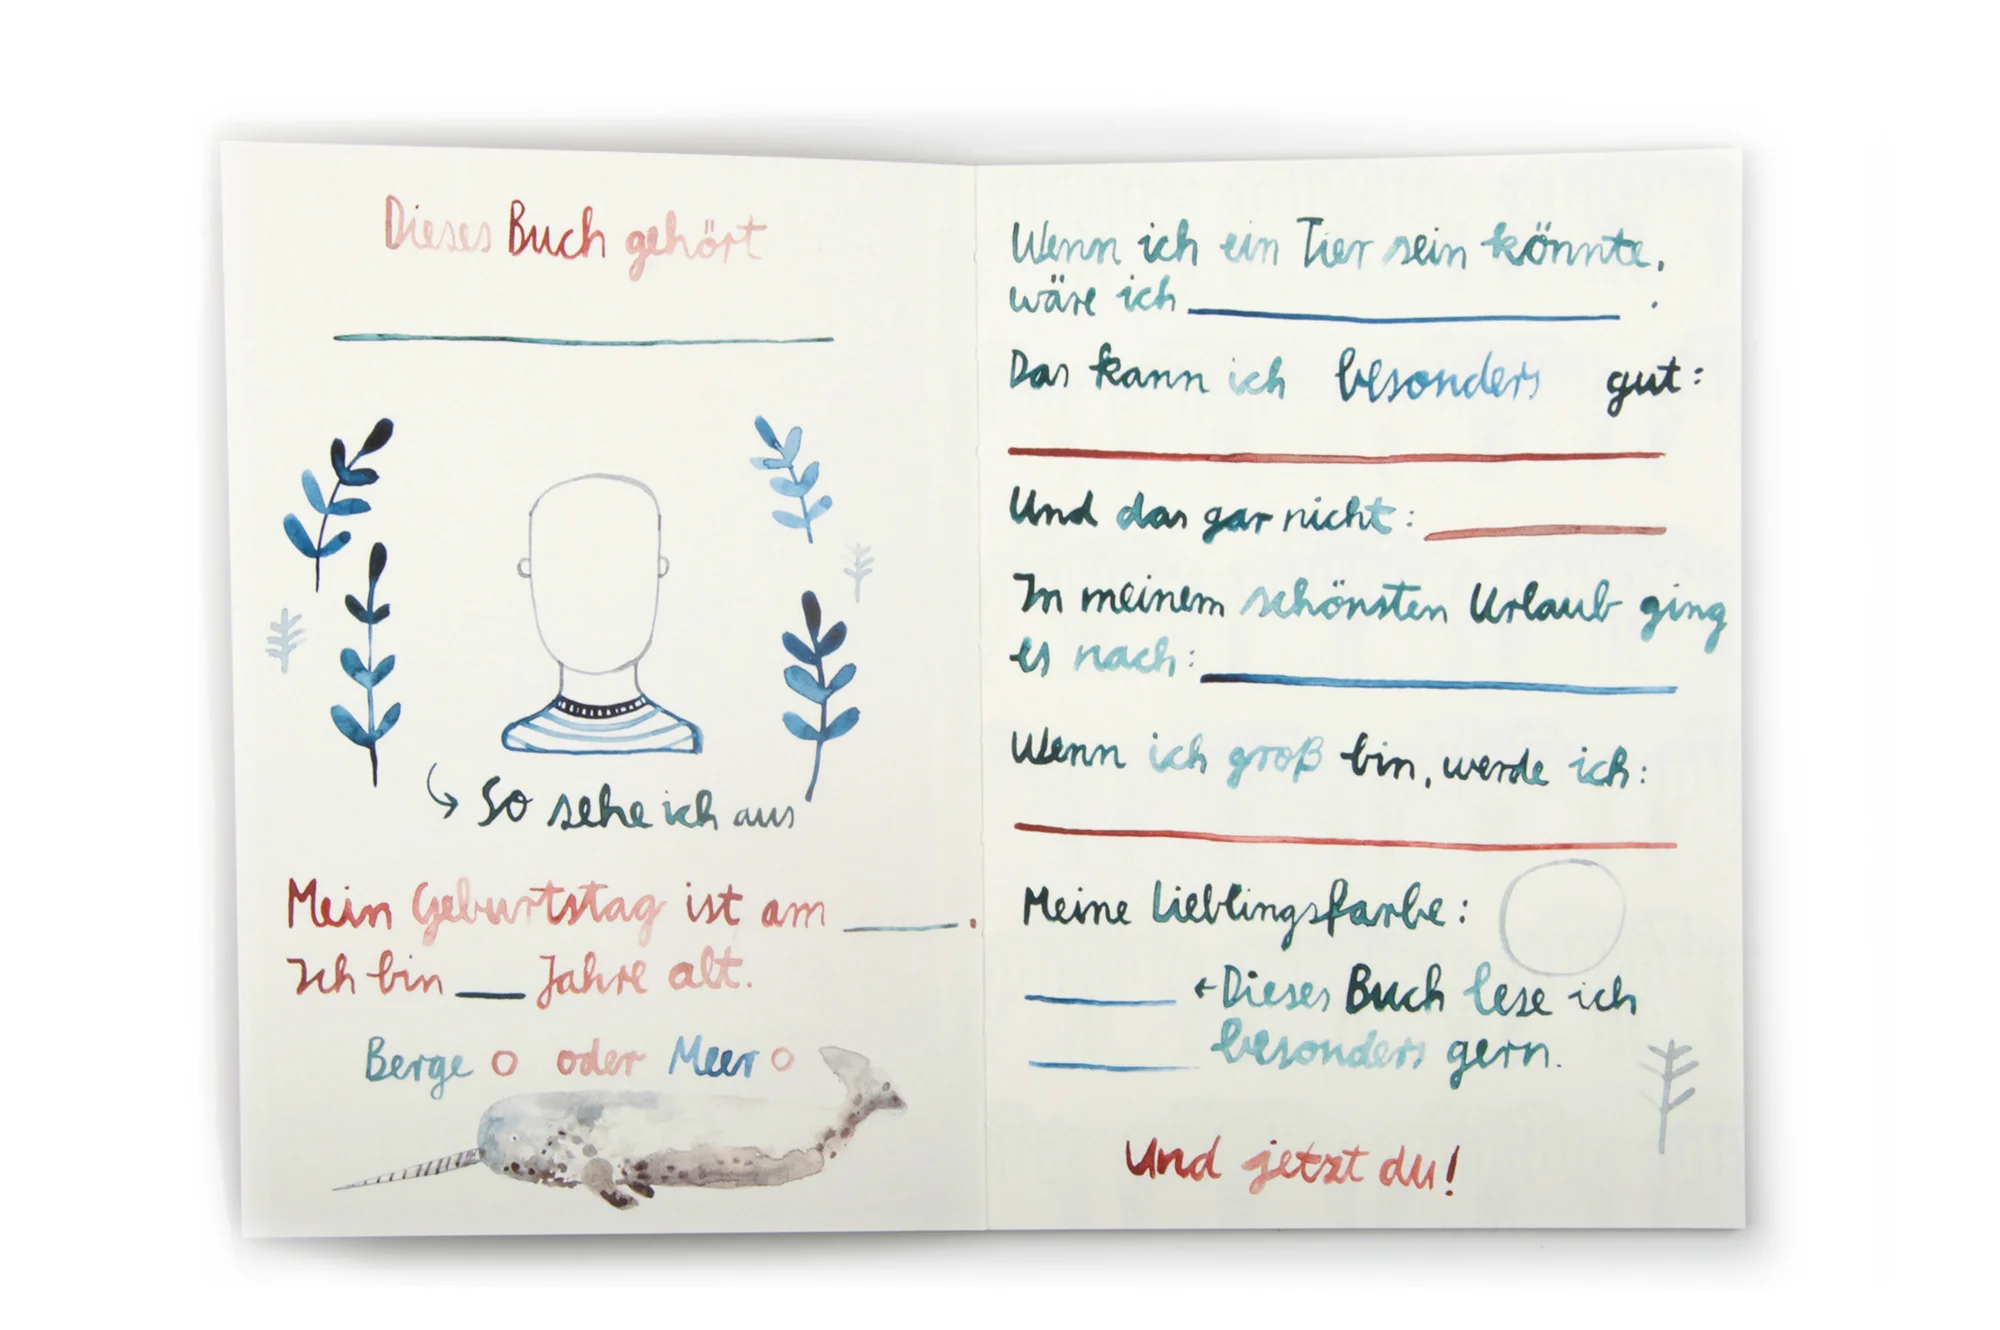 Dieses Buch gehört
So sehe ich aus
Mein Geburtstag ist am ____.
Ich bin ___ Jahre alt.
Berge O oder Meer O
Wenn ich ein Tier sein könnte,
wäre ich ____________ .
Das kann ich besonders gut:
Und das gar nicht: ________
In meinem schönsten Urlaub ging
es nach: ____________
Wenn ich groß bin, werde ich:
Meine Lieblingsfarbe:
←Dieses Buch lese ich
besonders gern.
Und jetzt du!